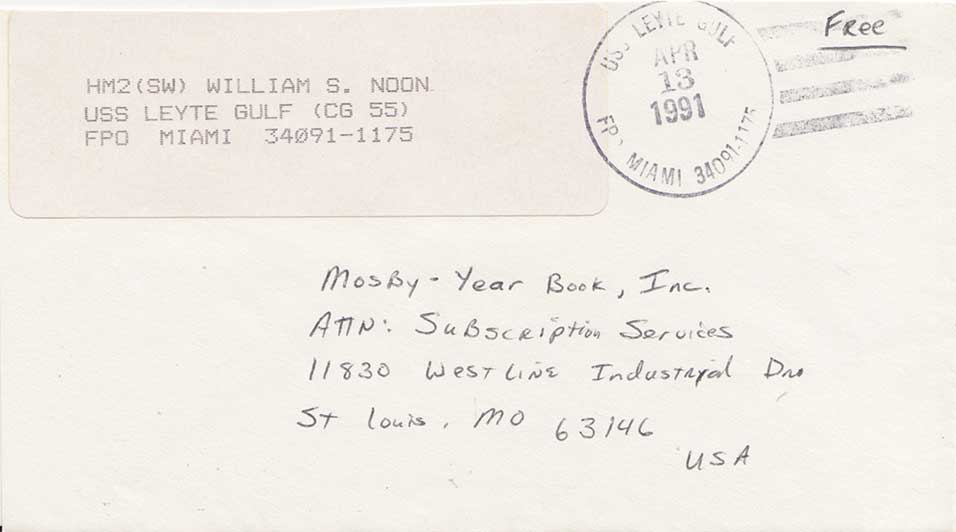 HM2(SW) WILLIAM S. NOON
USS LEYTE GULF (CG 55)
FPO MIAMI 34091-1175
USS LEYTE GULF
APR
13
1991
FPO MIAMI 34091-1175
Free
Mosby-Year Book, Inc.
ATTN: Subscription Services
11830 Westline Industrial Dr
St Louis, MO 63146
USA